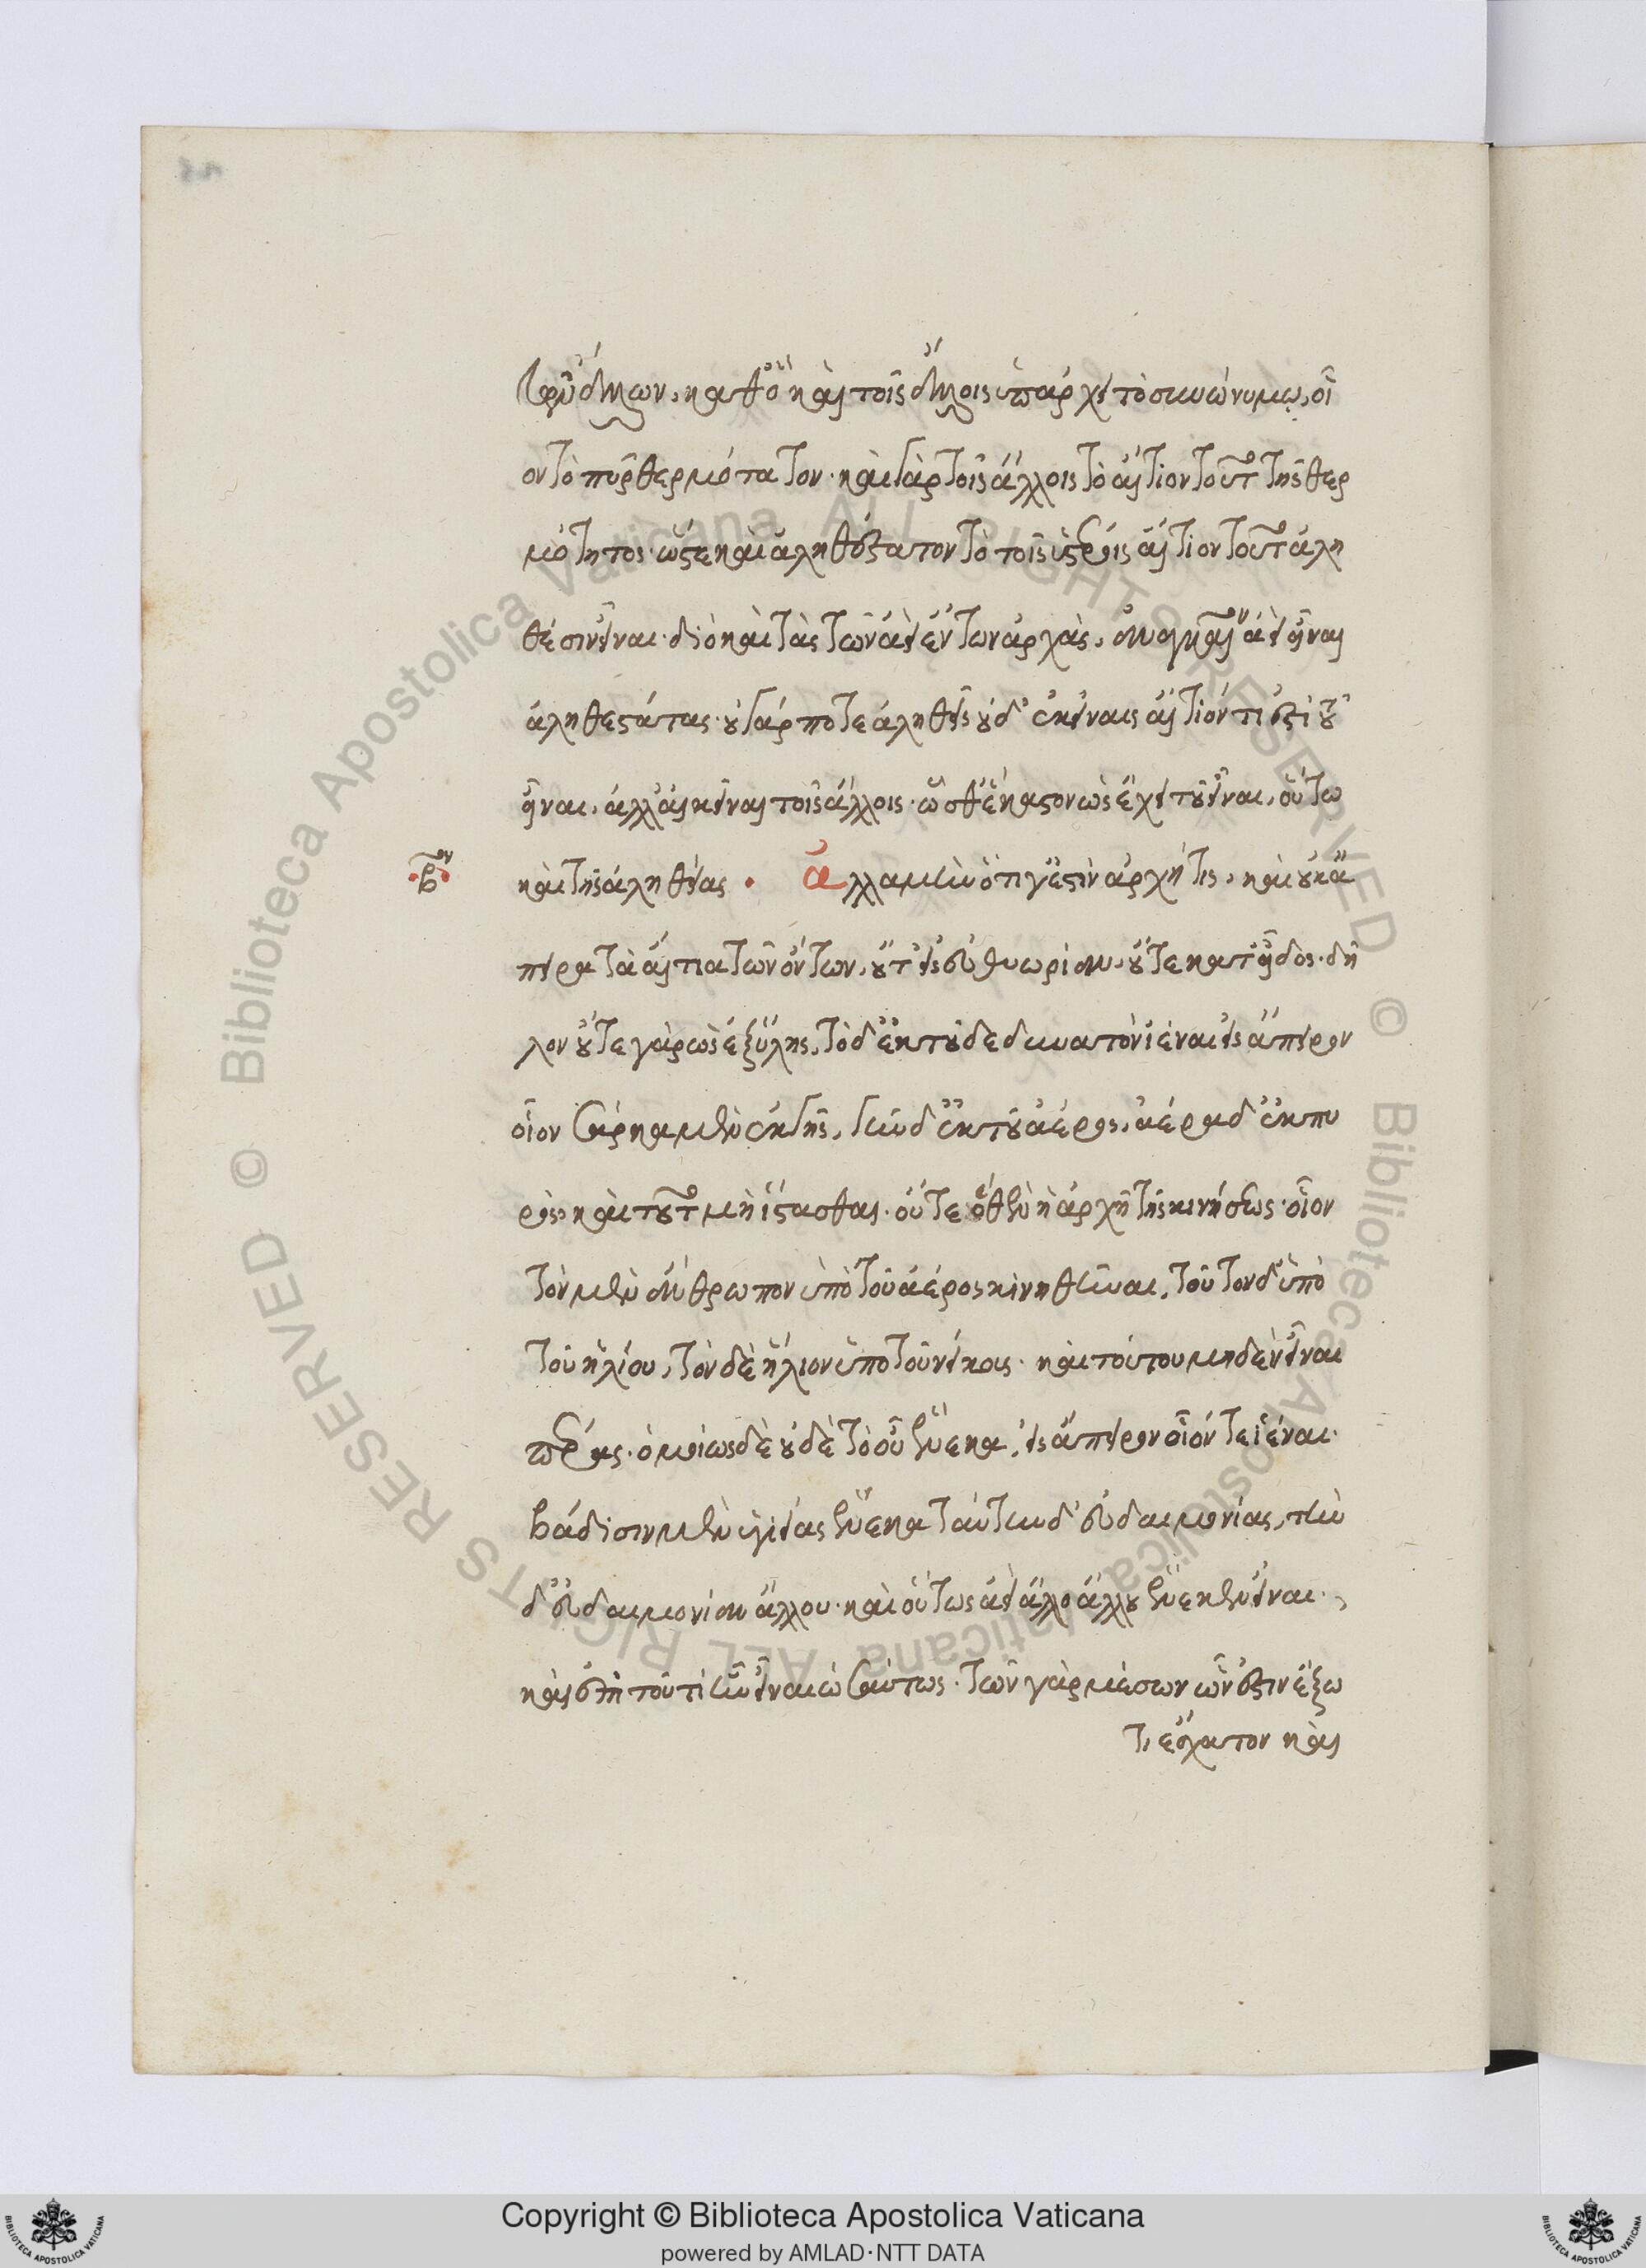 τῶν ἄλλων, καθ' ὃ καὶ τοῖς ἄλλοις ὑπάρχει τὸ συνώνυμον, οἷ
ον τὸ πῦρ θερμότατον· καὶ γὰρ τοῖς ἄλλοις τὸ αἴτιον τοῦτο τῆς θερ
μότητος· ὥστε καὶ ἀληθέστατον τὸ τοῖς ὑστέροις αἴτιον τοῦ ἀλη
θέσιν εἶναι· διὸ καὶ τὰς τῶν ἀεὶ ὄντων ἀρχὰς, ἀναγκαῖον ἀεὶ εἶναι
ἀληθεστάτας· οὐ γάρ ποτε ἀληθεῖς οὐδ' ἐκείναις αἴτιόν τι ἐστὶ τοῦ
εἶναι, ἀλλ' ἐκεῖναι τοῖς ἄλλοις· ὥσθ' ἕκαστον ὡς ἔχει τοῦ εἶναι, οὕτω
β<sup>ον</sup> καὶ τῆς ἀληθείας· ἀλλὰ μὴν ὅτι γ' ἔστιν ἀρχή τις, καὶ οὐκ ἄ
πειρα τὰ αἴτια τῶν ὄντων, οὔτ' εἰς εὐθυωρίαν, οὔτε κατ' εἶδος· δῆ
λον οὔτε γὰρ ὡς ἐξ ὕλης, τὸ δ' ἐκ τοῦδε δυνατὸν ἰέναι εἰς ἄπειρον
οἷον σάρκα μὲν ἐκ γῆς, γῆν δ' ἐκ τοῦ ἀέρος, ἀέρα δ' ἐκ πυ
ρὸς, καὶ τοῦτο μὴ ἵστασθαι· οὔτε ὅθεν ἡ ἀρχὴ τῆς κινήσεως· οἷον
τὸν μὲν ἄνθρωπον ὑπὸ τοῦ ἀέρος κινηθῆναι, τοῦτον δ' ὑπὸ
τοῦ ἡλίου, τὸν δὲ ἥλιον ὑπὸ τοῦ νείκους· καὶ τούτου μηδὲν εἶναι
πέρας· ὁμοίως δὲ οὐδὲ τὸ οὗ ἕνεκα, εἰς ἄπειρον οἷόν τε ἰέναι·
βάδισιν μὲν ὑγιείας ἕνεκα ταύτην δ' εὐδαιμονίας, τὴν
δ' εὐδαιμονίαν ἄλλου· καὶ οὕτως ἀεὶ ἄλλο ἄλλου ἕνεκεν εἶναι·
καὶ ἐπὶ τοῦ τί ἦν εἶναι ὡσαύτως· τῶν γὰρ μέσων ὧν ἐστιν ἔξω
τι ἔσχατον καὶ
© Biblioteca Apostolica Vaticana ALL RIGHTS RESERVED © Biblioteca Apostolica Vaticana ALL RIGHTS RESERVED
Copyright © Biblioteca Apostolica Vaticana
powered by AMLAD·NTT DATA